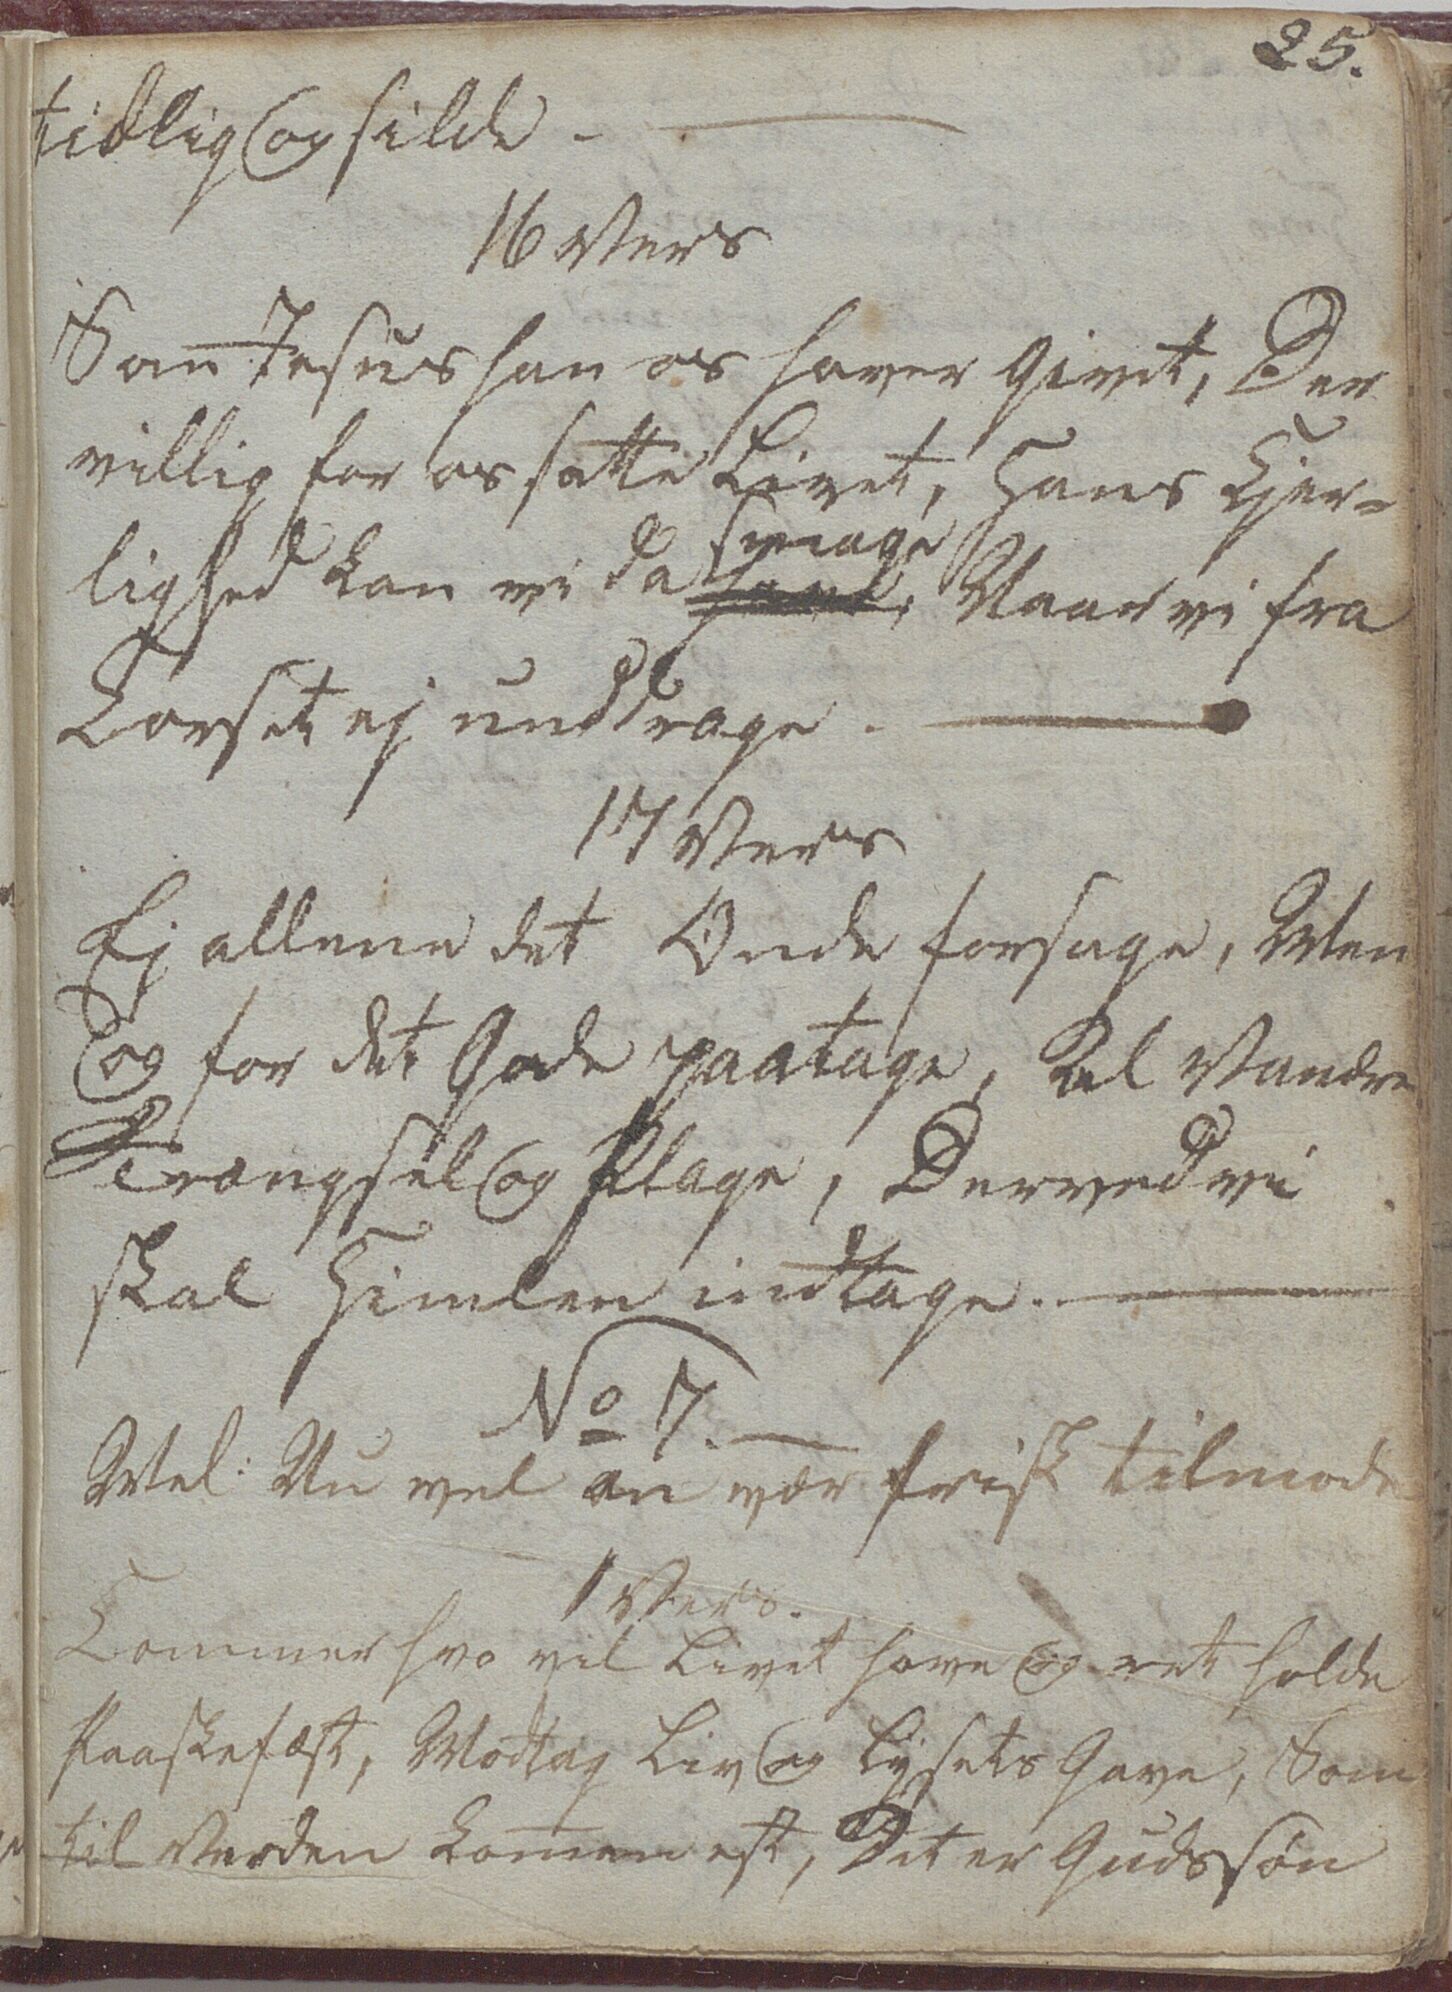 25.
tidlig og silde -
16 Vers
Som Jesus han os haver Givet, Der
villig for os satte Livet, Hans Kjer-
lighed kan vi da smage, Naar vi fra
Korset ej unddrage.
17 Vers
Ej allene det Onde forsage, Men
og for det Gode paatage, Al Vandre
Trængsel og Plage, Derved vi
skal Himlen indtage.
No 7.
Mel: Nu vel an vær frisk tilmode
1 Vers.
Kommer hvo vil Livet have og ret holde
Paaskefæst, Modtag Liv og Lysets Gave, Som
til Verden kommen est, Det er Guds søn